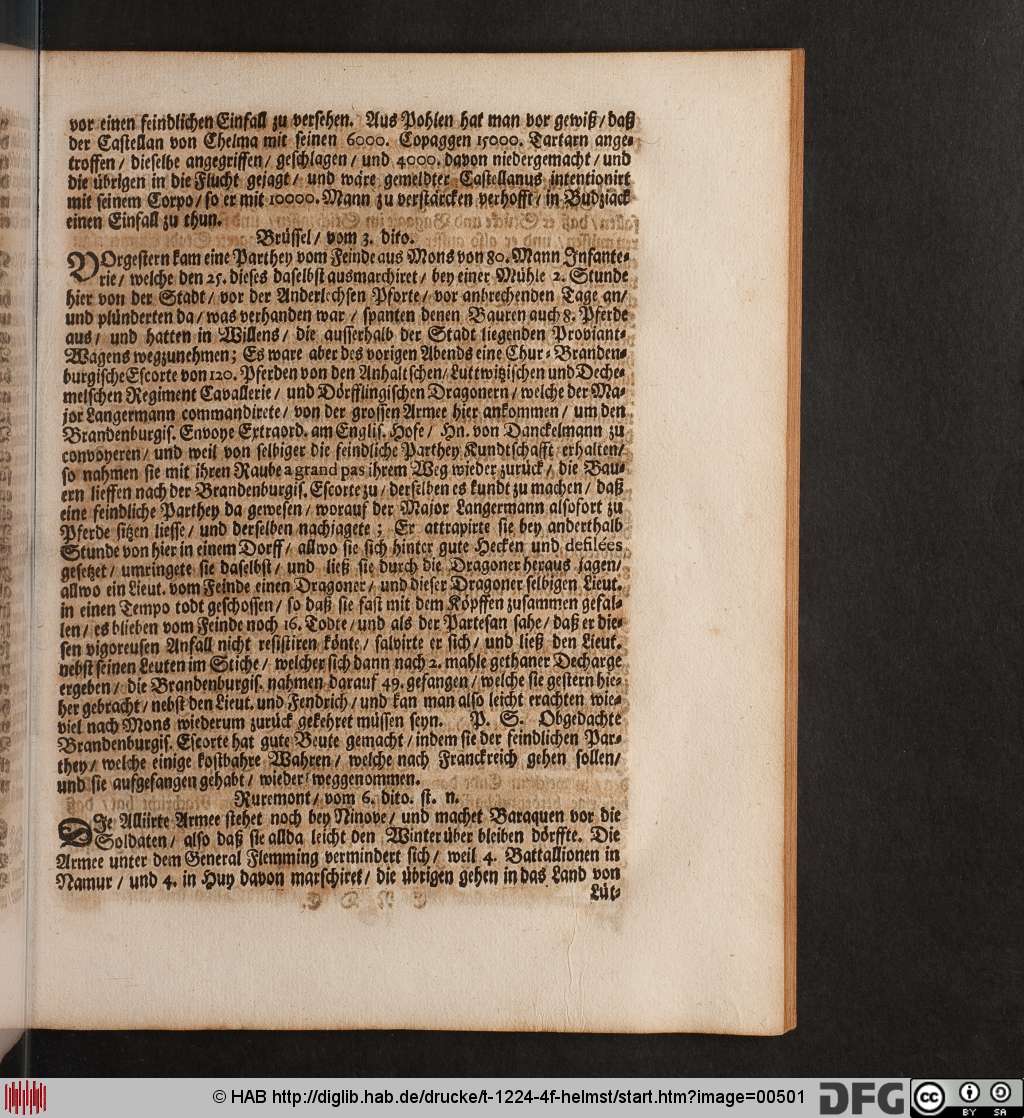 vor einen feindlichen Einfall zu versehen. Aus Pohlen hat man vor gewiß / daß
der Castellan von Chelma mit seinen 6000. Copaggen 15000. Tartarn ange-
troffen / dieselbe angegriffen / geschlagen / und 4000. davon niedergemacht / und
die übrigen in die Flucht gejagt / und wäre gemeldter Castellanus intentionirt
mit seinem Corpo / so er mit 10000. Mann zu verstärcken verhofft / in Budziack
einen Einfall zu thun.
Brüssel / vom 3. dito.
VOrgestern kam eine Parthey vom Feinde aus Mons von 80. Mann Infante-
rie / welche den 25. dieses daselbst ausmarchiret / bey einer Mühle 2. Stunde
hier von der Stadt / vor der Anderlechsen Pforte / vor anbrechenden Tage an /
und plünderten da / was verhanden war / spanten denen Bauren auch 8. Pferde
aus / und hatten in Willens / die ausserhalb der Stadt liegenden Proviant-
Wagens wegzunehmen; Es ware aber des vorigen Abends eine Chur-Branden-
burgische Escorte von 120. Pferden von den Anhaltschen / Luttwitzischen und Deche-
melschen Regiment Cavallerie / und Dörfflingischen Dragonern / welche der Ma-
jor Langermann commandirete / von der grossen Armee hier ankommen / um den
Brandenburgis. Envoye Extraord. am Englis. Hofe / Hn. von Danckelmann zu
convoyeren / und weil von selbiger die feindliche Parthey Kundtschafft erhalten /
so nahmen sie mit ihren Raube a grand pas ihrem Weg wieder zurück / die Bau-
ern lieffen nach der Brandenburgis. Escorte zu / derselben es kundt zu machen / daß
eine feindliche Parthey da gewesen / worauf der Major Langermann alsofort zu
Pferde sitzen liesse / und derselben nachjagete; Er attrapirte sie bey anderthalb
Stunde von hier in einem Dorff / allwo sie sich hinter gute Hecken und defilées
gesetzet / umringete sie daselbst / und ließ sie durch die Dragoner heraus jagen /
allwo ein Lieut. vom Feinde einen Dragoner / und dieser Dragoner selbigen Lieut.
in einen Tempo todt geschossen / so daß sie fast mit dem Köpffen zusammen gefal-
len / es blieben vom Feinde noch 16. Todte / und als der Partesan sahe / daß er die-
sen vigoreusen Anfall nicht resistiren könte / salvirte er sich / und ließ den Lieut.
nebst seinen Leuten im Stiche / welcher sich dann nach 2. mahle gethaner Decharge
ergeben / die Brandenburgis. nahmen darauf 49. gefangen / welche sie gestern hie-
her gebracht / nebst den Lieut. und Fendrich / und kan man also leicht erachten wie-
viel nach Mons wiederum zurück gekehret müssen seyn. P. S. Obgedachte
Brandenburgis. Escorte hat gute Beute gemacht / indem sie der feindlichen Par-
they / welche einige kostbahre Wahren / welche nach Franckreich gehen sollen /
und sie aufgefangen gehabt / wieder weggenommen.
Ruremont / vom 6. dito. st. n.
DIe Alliirte Armee stehet noch bey Ninove / und machet Baraquen vor die
Soldaten / also daß sie allda leicht den Winter über bleiben dörffte. Die
Armee unter dem General Flemming vermindert sich / weil 4. Battallionen in
Namur / und 4. in Huy davon marschiret / die übrigen gehen in das Land von
Lüt-
© HAB http://diglib.hab.de/drucke/t-1224-4f-helmst/start.htm?image=00501
DFG
cc BY SA